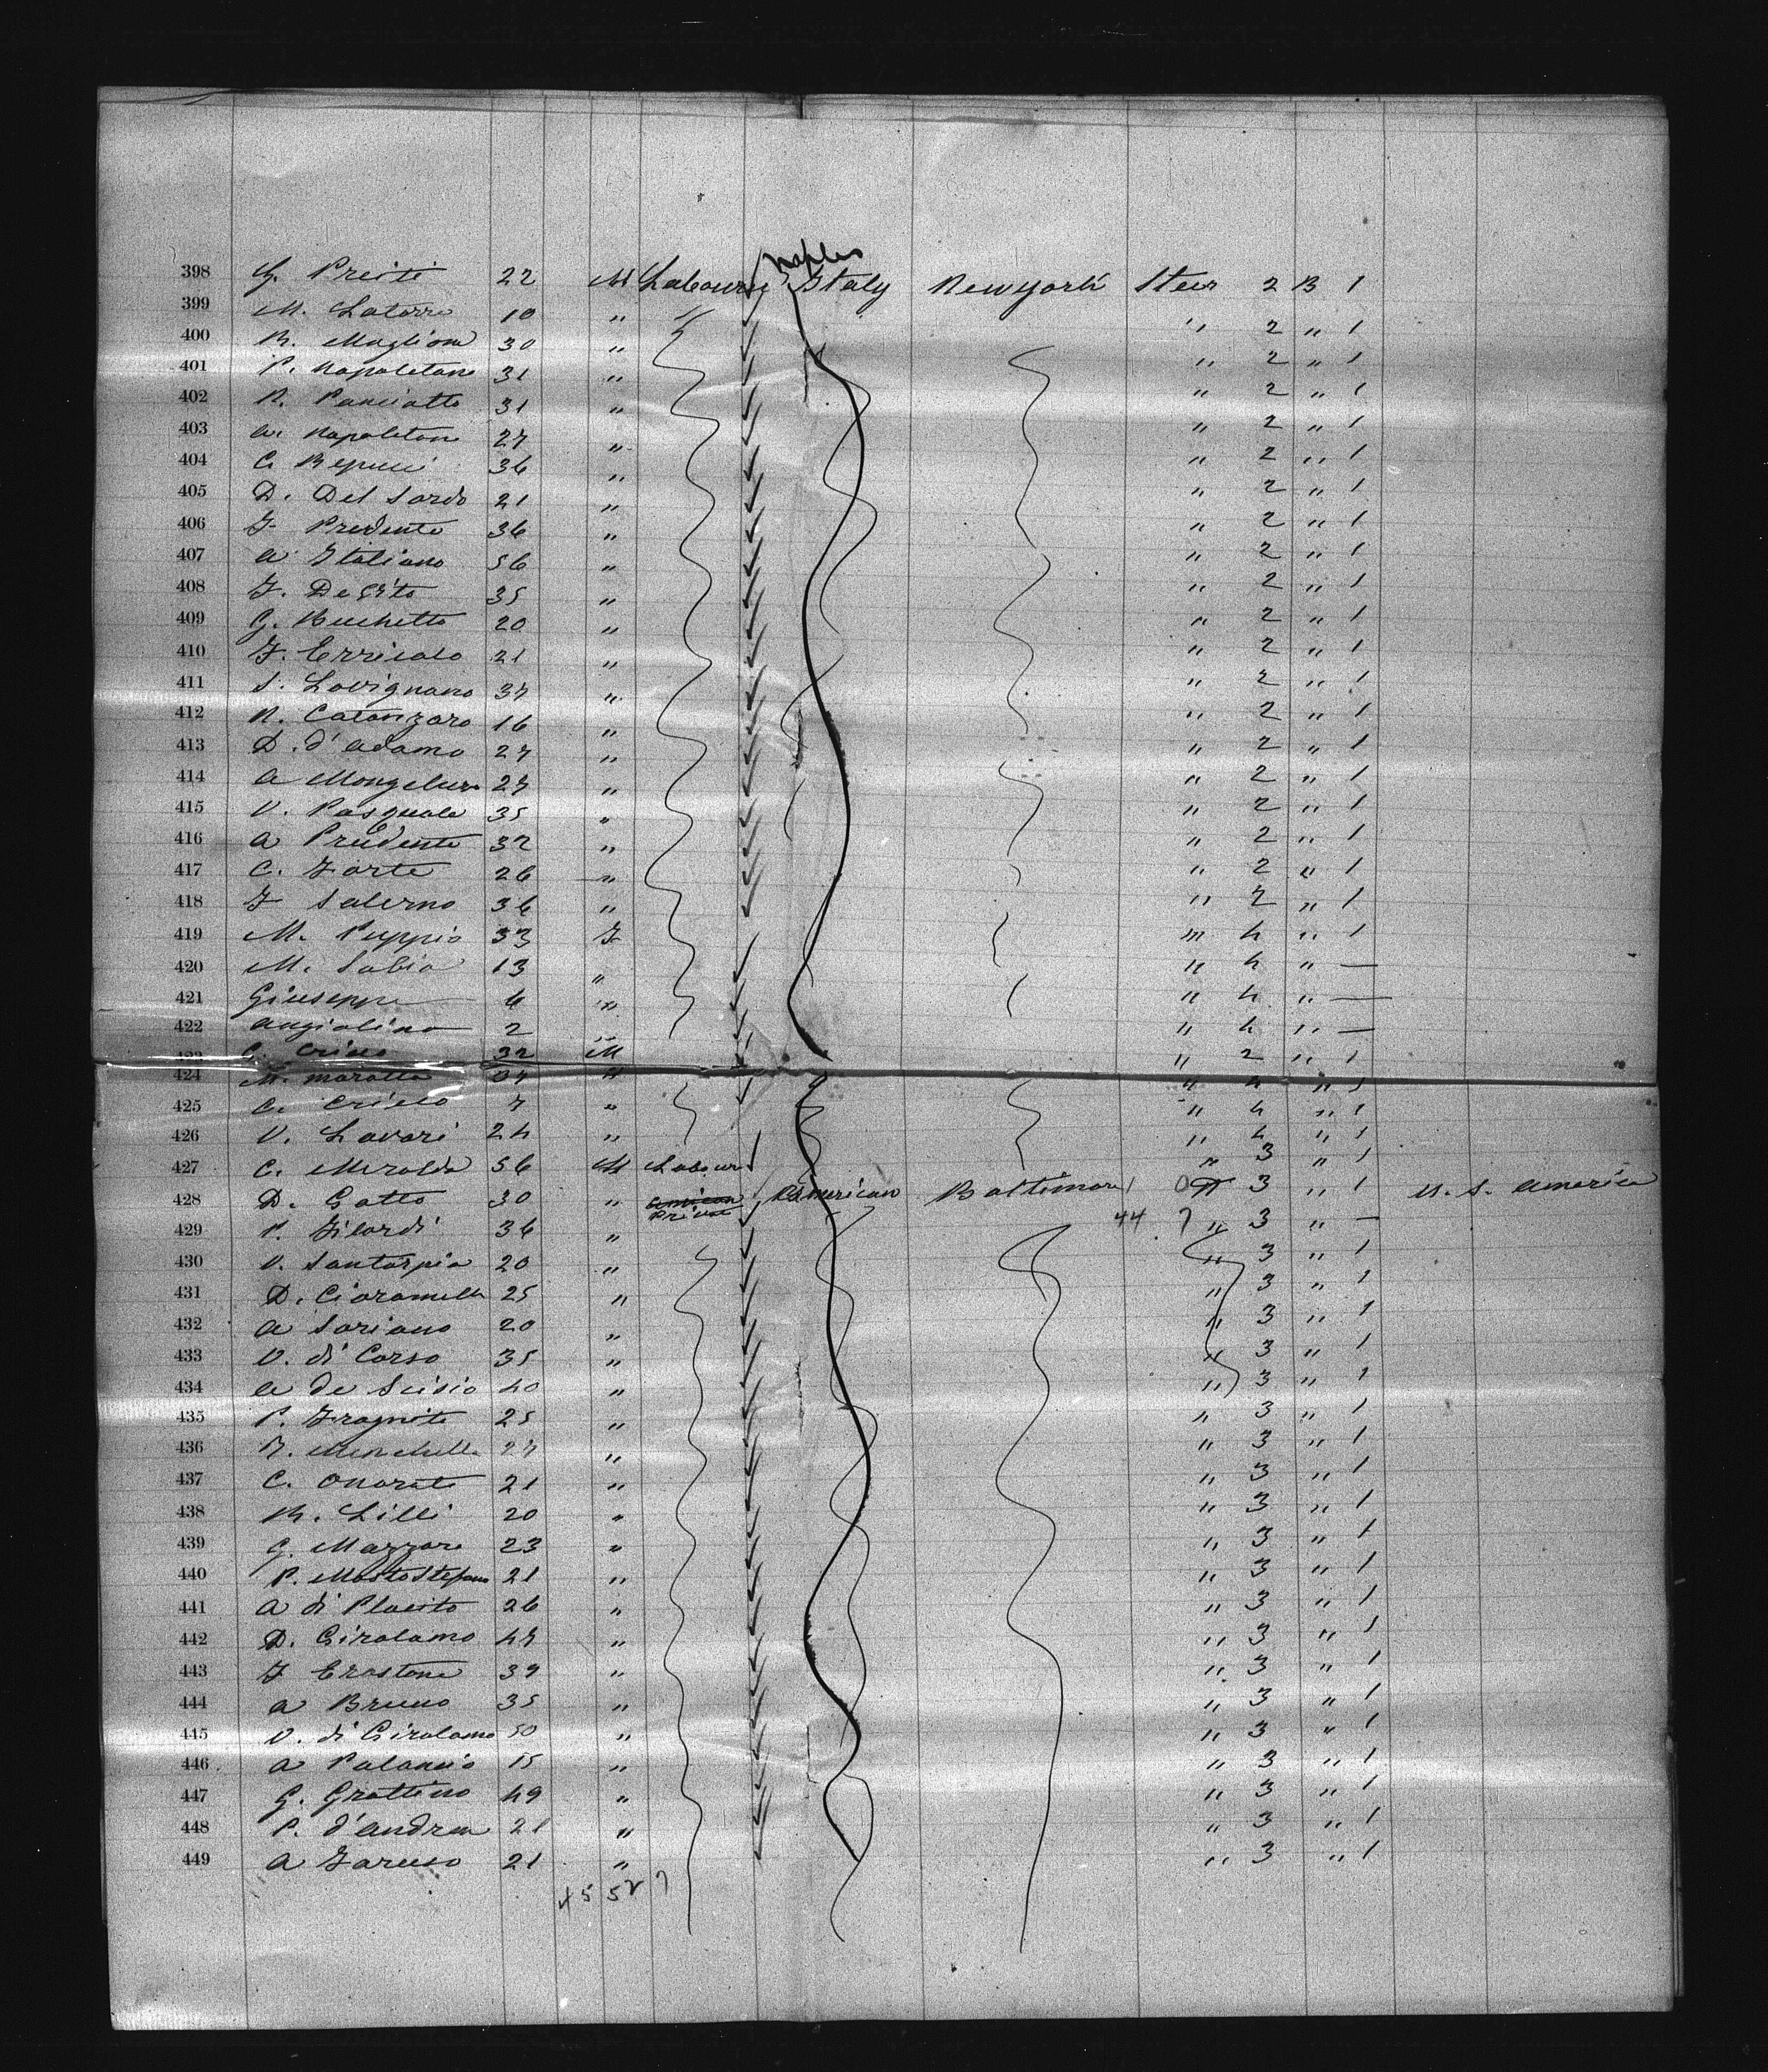 Naples
398 G. Preiti 22 M Labourer Italy New york Steer 2 B 1
399 M. Latorre 10 " " 2 " 1
400 R. Maglione 30 " " 2 " 1
401 P. Napoletano 31 " " 2 " 1
402 R. Panciatto 31 " " 2 " 1
403 A. Napoletano 27 " " 2 " 1
404 C. 36 " " 2 " 1
405 D. Del Sordo 21 " " 2 " 1
406 F. Prudente 36 " " 2 " 1
407 A Italiano 56 " " 2 " 1
408 F. De Sito 35 " " 2 " 1
409 G. Buchetto 20 " " 2 " 1
410 F. Erricolo 21 " " 2 " 1
411 S. Lavignano 37 " " 2 " 1
412 R. Catanzaro 16 " " 2 " 1
413 D. d'Adamo 27 " " 2 " 1
414 A 27 " " 2 " 1
415 V. Pasquale 35 " " 2 " 1
416 A Prudente 32 " " 2 " 1
417 C. Forte 26 " " 2 " 1
418 F Salerno 36 " " 2 " 1
419 M. Puppio 33 F " 4 " 1
420 M. Sabia 13 " " 4 " —
421 Giuseppe 6 " " 4 " —
422 Angiolina 2 " " 4 " —
423 32 M " 2 " 1
424 M. Maratta 37 " " 4 " 1
425 C. 7 " " 4 " 1
426 V. Lavari 24 " " 4 " 1
427 C. Miraldo 56 M Labour " 3 " 1
428 D. Gatto 30 " American Baltimore 3 " 1 U. S. America
429 P. Filardi 36 " 44 7 " 3 " —
430 V. Santarpia 20 " " 3 " 1
431 D. Cioramella 25 " " 3 " 1
432 A Soriano 20 " " 3 " 1
433 V. di Corso 35 " " 3 " 1
434 A de Scisio 40 " " 3 " 1
435 P. Fragnito 25 " " 3 " 1
436 27 " " 3 " 1
437 C. Onorato 21 " " 3 " 1
438 R. Lilli 20 " " 3 " 1
439 G. Mazzare 23 " " 3 " 1
440 P. Mastostefano 21 " " 3 " 1
441 A di Placito 26 " " 3 " 1
442 D. Girolamo 47 " " 3 " 1
443 F Crostone 39 " " 3 " 1
444 A Bruno 35 " " 3 " 1
445 V. di Girolamo 50 " " 3 " 1
446 A Palancio 15 " " 3 " 1
447 G. Grattino 49 " " 3 " 1
448 P. d'Andrea 21 " " 3 " 1
449 A Faruso 21 " " 3 " 1